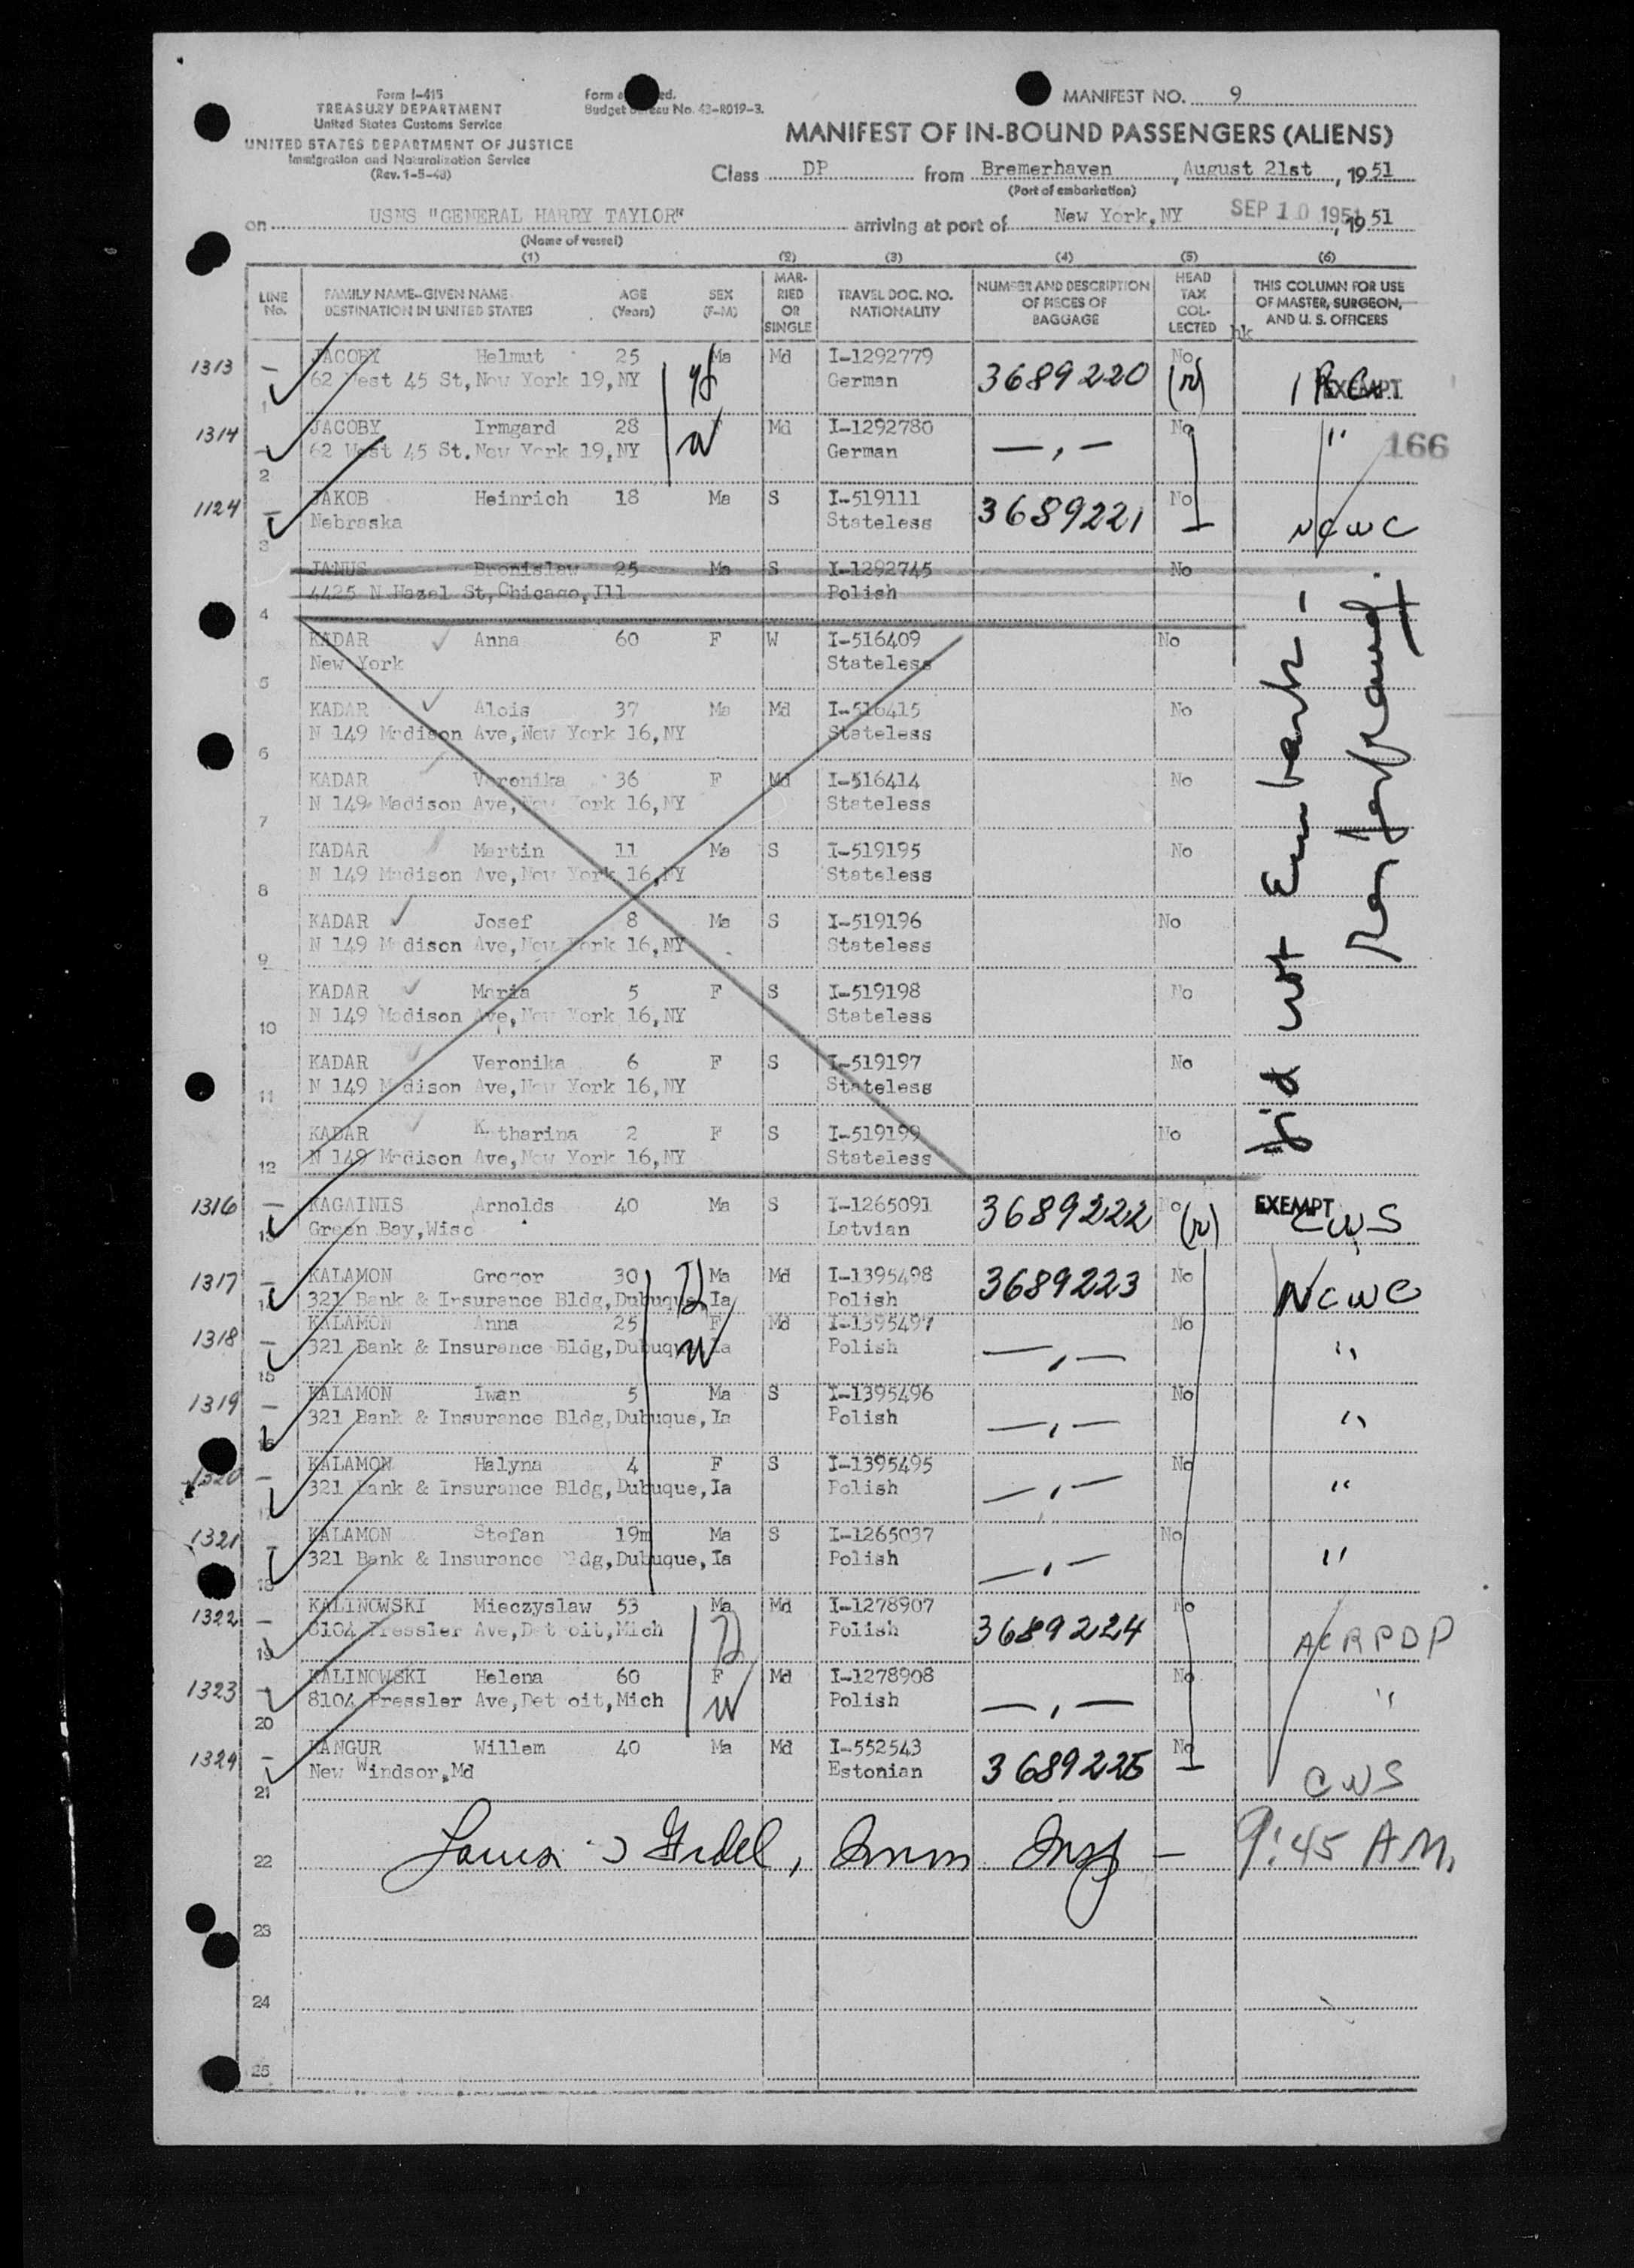 Form I-415
TREASURY DEPARTMENT
United States Customs Service
UNITED STATES DEPARTMENT OF JUSTICE
Immigration and Naturalization Service
(Rev. 1-5-48)
Budget No. 43-R019-3.
MANIFEST NO. 9
MANIFEST OF IN-BOUND PASSENGERS (ALIENS)
Class DP from Bremerhaven, August 21st, 1951
(Port of embarkation)
on USNS "GENERAL HARRY TAYLOR" arriving at port of New York, NY SEP 10 1951, 1951
(Name of vessel)
(1) (2) (3) (4) (5) (6)
LINE No. FAMILY NAME-GIVEN NAME DESTINATION IN UNITED STATES AGE (Years) SEX (F-M) MARRIED OR SINGLE TRAVEL DOC. NO. NATIONALITY NUMBER AND DESCRIPTION OF PIECES OF BAGGAGE HEAD TAX COLLECTED THIS COLUMN FOR USE OF MASTER, SURGEON, AND U. S. OFFICERS
hk
1313 JACOBY Helmut 25 Ma Md I-1292779 3689220 No
1 62 West 45 St, New York 19, NY German (r) IRC EXEMPT
1314 JACOBY Irmgard 28 F Md I-1292780 —,— No "
2 62 West 45 St. New York 19, NY W German 166
1124 JAKOB Heinrich 18 Ma S I-519111 3689221 No
3 Nebraska Stateless NCWC
JANUS Bronislaw 25 Ma S I-1292745 No
4 4425 N Hazel St, Chicago, Ill Polish
KADAR Anna 60 F W I-516409 No
5 New York Stateless
KADAR Alois 37 Ma Md I-516415 No
6 N 149 Madison Ave, New York 16, NY Stateless
KADAR Veronika 36 F Md I-516414 No
7 N 149 Madison Ave, New York 16, NY Stateless
KADAR Martin 11 Ma S I-519195 No
8 N 149 Madison Ave, New York 16, NY Stateless
KADAR Josef 8 Ma S I-519196 No
9 N 149 Madison Ave, New York 16, NY Stateless
KADAR Maria 5 F S I-519198 No
10 N 149 Madison Ave, New York 16, NY Stateless
KADAR Veronika 6 F S I-519197 No
11 N 149 Madison Ave, New York 16, NY Stateless
KADAR Katharina 2 F S I-519199 No
12 N 149 Madison Ave, New York 16, NY Stateless
Did not Embark -
1316 KAGAINIS Arnolds 40 Ma S I-1265091 3689222 No EXEMPT
13 Green Bay, Wisc Latvian (r) CWS
1317 KALAMON Gregor 30 H Ma Md I-1395498 3689223 No
14 321 Bank & Insurance Bldg, Dubuque, Ia Polish NCWC
1318 KALAMON Anna 25 F Md I-1395497 No
15 321 Bank & Insurance Bldg, Dubuque, Ia W Polish —,— "
1319 KALAMON Iwan 5 Ma S I-1395496 No
16 321 Bank & Insurance Bldg, Dubuque, Ia Polish —,— "
1320 KALAMON Halyna 4 F S I-1395495 No
17 321 Bank & Insurance Bldg, Dubuque, Ia Polish —,— "
1321 KALAMON Stefan 19m Ma S I-1265037 No
18 321 Bank & Insurance Bldg, Dubuque, Ia Polish —,— "
1322 KALINOWSKI Mieczyslaw 53 Ma Md I-1278907 No
19 8104 Pressler Ave, Det oit, Mich H Polish 3689224 ACRPDP
1323 KALINOWSKI Helena 60 F Md I-1278908 No
20 8104 Pressler Ave, Det oit, Mich W Polish —,— "
1324 KANGUR Willem 40 Ma Md I-552543 No
21 New Windsor, Md Estonian 3689225 CWS
22 Imm Insp — 9:45 AM.
23
24
25